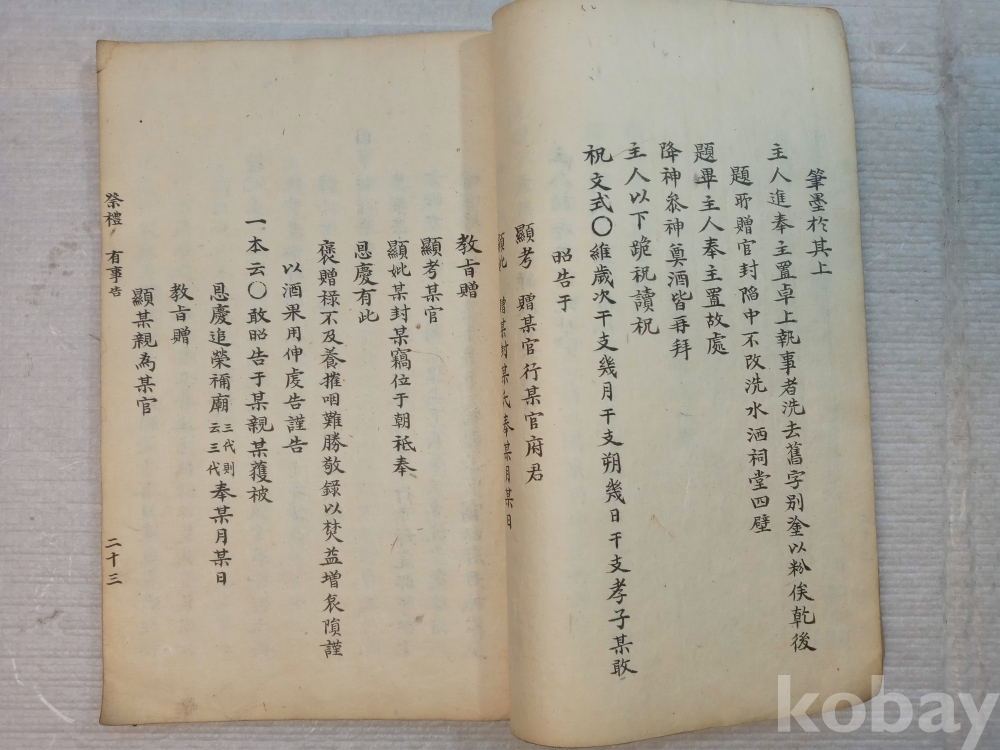 筆墨於其上
主人進奉主置卓上執事者洗去舊字別塗以粉俟乾後
題所贈官封陷中不改洗水洒祠堂四壁
題畢主人奉主置故處
降神叅神奠酒皆再拜
主人以下跪祝讀祝
祝文式〇維歲次干支幾月干支朔幾日干支孝子某敢
昭告于
顯考 贈某官行某官府君
顯妣 贈某封某氏奉某月某日
敎旨贈
顯考某官
顯妣某封某竊位于朝祗奉
恩慶有此
褒贈祿不及養摧咽難勝敬錄以焚益增哀隕謹
以酒果用伸虔告謹告
一本云〇敢昭告于某親某獲被
恩慶追榮禰廟三代則云三代奉某月某日
敎旨贈
顯某親為某官
祭禮 有事告
二十三
kobay